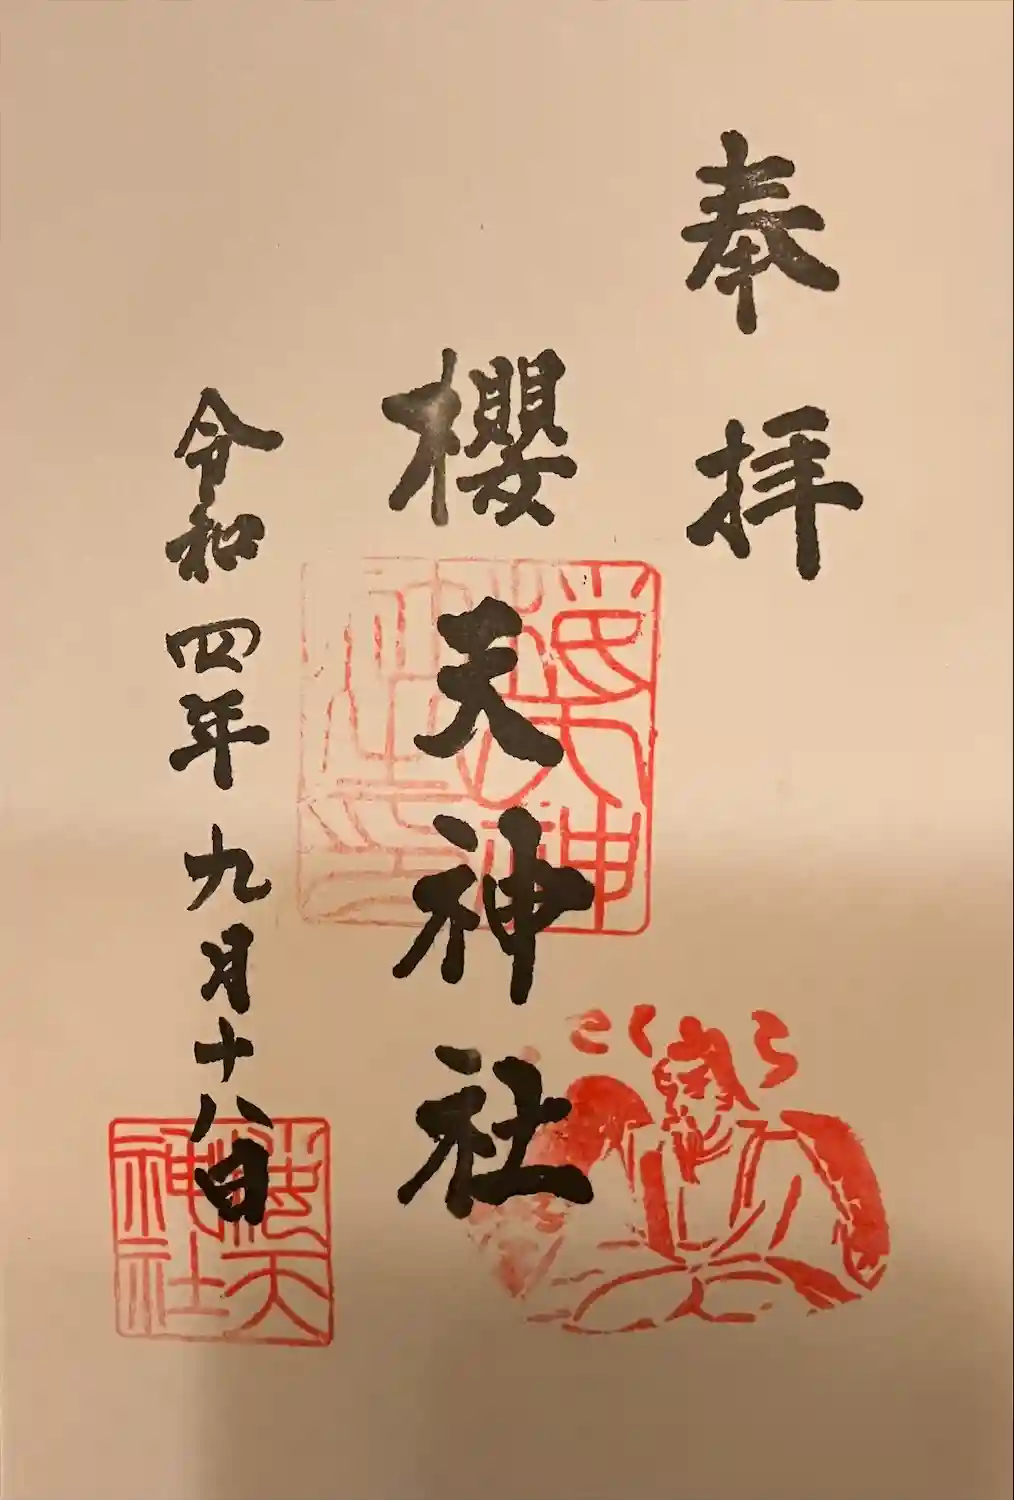 奉拝
櫻天神社
令和四年九月十八日
桜天神社印
桜天神社